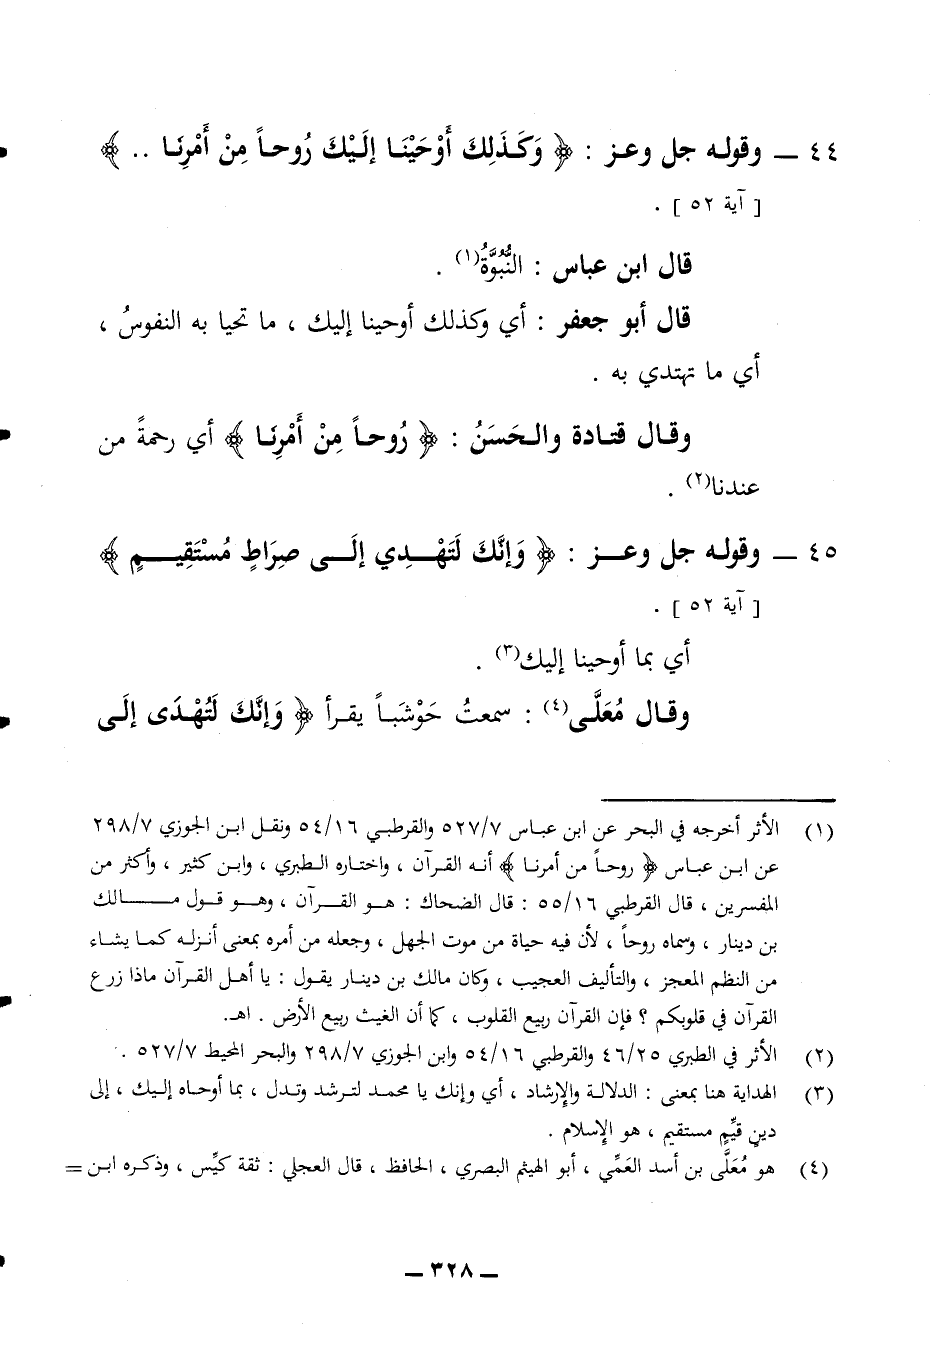 ٤٤ ــ وقوله جل وعز : ﴿ وَكَذَلِكَ أَوْحَيْنَا إلَيْكَ رُوحاً مِنْ أَمْرِنَا .. ﴾
[ آية ٥٢ ] .
قال ابن عباس : النُّبُوَّةُ(١) .
قال أبو جعفر : أي وكذلك أوحينا إليك ، ما تحيا به النفوسُ ،
أي ما تهتدي به .
وقال قتادة والحَسَنُ : ﴿ رُوحاً مِنْ أَمْرِنَا ﴾ أي رحمةً من
عندنا(٢) .
٤٥ ــ وقوله جل وعز : ﴿ وَإنَّكَ لَتَهْدِي إلَى صِرَاطٍ مُسْتَقِيمٍ ﴾
[ آية ٥٢ ] .
أي بما أوحينا إليك(٣) .
وقال مُعَلَّى(٤) : سمعتُ حَوْشَباً يقرأ ﴿ وَإنَّكَ لَتُهْدَى إلَى
(١) الأثر أخرجه في البحر عن ابن عباس ٥٢٧/٧ والقرطبي ٥٤/١٦ ونقل ابن الجوزي ٢٩٨/٧
عن ابن عباس ﴿ روحاً من أمرنا ﴾ أنه القرآن ، واختاره الطبري ، وابن كثير ، وأكثر من
المفسرين ، قال القرطبي ٥٥/١٦ : قال الضحاك : هو القرآن ، وهو قول مالك
بن دينار ، وسماه روحاً ، لأن فيه حياة من موت الجهل ، وجعله من أمره بمعنى أنزله كما يشاء
من النظم المعجز ، والتأليف العجيب ، وكان مالك بن دينار يقول : يا أهل القرآن ماذا زرع
القرآن في قلوبكم ؟ فإن القرآن ربيع القلوب ، كما أن الغيث ربيع الأرض . اهـ.
(٢) الأثر في الطبري ٤٦/٢٥ والقرطبي ٥٤/١٦ وابن الجوزي ٢٩٨/٧ والبحر المحيط ٥٢٧/٧ .
(٣) الهداية هنا بمعنى : الدلالة والإرشاد ، أي وإنك يا محمد لترشد وتدل ، بما أوحاه إليك ، إلى
دينٍ قيِّمٍ مستقيم ، هو الإسلام .
(٤) هو مُعَلَّى بن أسد العَمِّي ، أبو الهيثم البصري ، الحافظ ، قال العجلي : ثقة كيِّس ، وذكره ابن =
ــ ٣٢٨ ــ